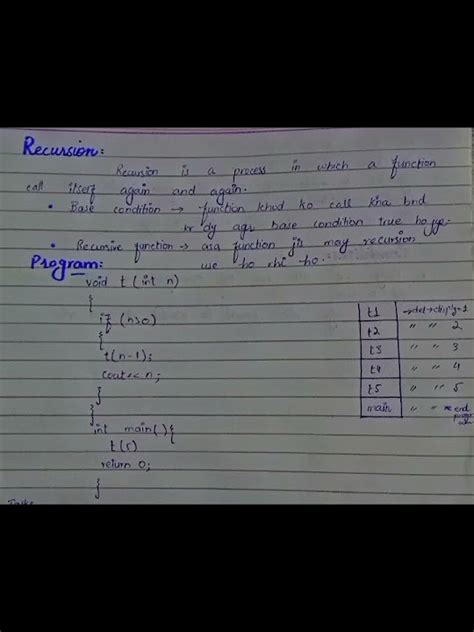 Recursion:
Recursion is a process in which a function
call itself again and again.
• Base condition → function khud ko call krna bnd
kr dy agr base condition true ho
• Recursive function → asa function jis may recursion
use ho rhi ho.
Program:
void t (int n)
{
if (n>0)
{
t(n-1);
cout<< n;
}
}
int main( ){
t(5)
return 0;
}
t1 → del → display=1
t2 " " 2
t3 " " 3
t4 " " 4
t5 " " 5
main " " end
Tasks